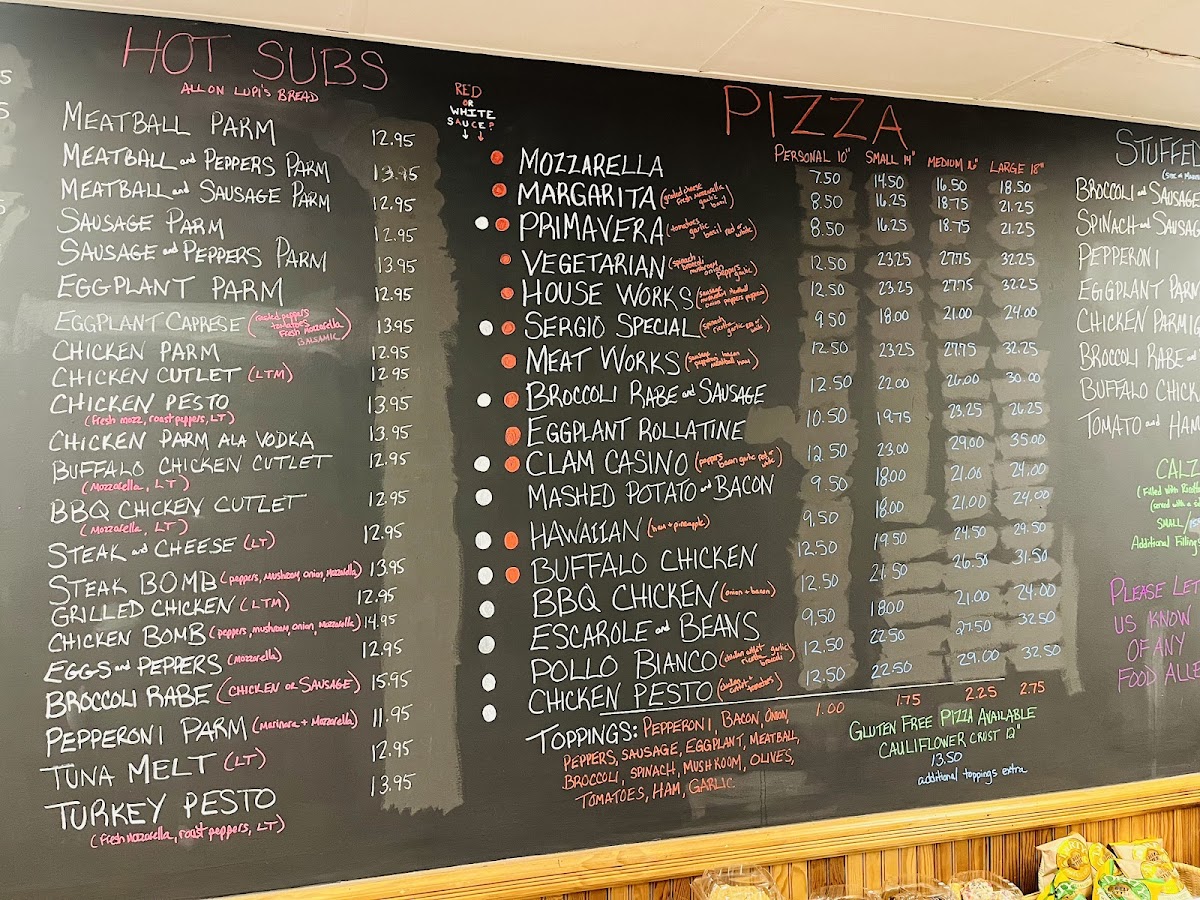 HOT SUBS
ALL ON LUPI'S BREAD
MEATBALL PARM 12.95
MEATBALL and PEPPERS PARM 13.95
MEATBALL and SAUSAGE PARM 12.95
SAUSAGE PARM 12.95
SAUSAGE and PEPPERS PARM 13.95
EGGPLANT PARM 12.95
EGGPLANT CAPRESE (roasted peppers tomatoes Fresh Mozzarella BALSAMIC) 13.95
CHICKEN PARM 12.95
CHICKEN CUTLET (LTM) 12.95
CHICKEN PESTO 13.95
(fresh mozz, roast peppers, LT)
CHICKEN PARM ALA VODKA 13.95
BUFFALO CHICKEN CUTLET 12.95
(Mozzarella, LT)
BBQ CHICKEN CUTLET 12.95
(Mozzarella, LT)
STEAK and CHEESE (LT) 12.95
STEAK BOMB (peppers, mushroom, onion, Mozzarella) 13.95
GRILLED CHICKEN (LTM) 12.95
CHICKEN BOMB (peppers, mushroom, onion, Mozzarella) 14.95
EGGS and PEPPERS (Mozzarella) 12.95
BROCCOLI RABE (CHICKEN OR SAUSAGE) 15.95
PEPPERONI PARM (Marinara + Mozzarella) 11.95
TUNA MELT (LT) 12.95
TURKEY PESTO 13.95
(Fresh Mozzarella, roast peppers, LT)
RED
OR
WHITE
SAUCE?
PIZZA
PERSONAL 10" SMALL 14" MEDIUM 16" LARGE 18"
MOZZARELLA 7.50 14.50 16.50 18.50
MARGARITA (grated cheese Fresh Mozzarella garlic basil) 8.50 16.25 18.75 21.25
PRIMAVERA (tomatoes garlic basil red or white) 8.50 16.25 18.75 21.25
VEGETARIAN (spinach broccoli mushroom onion peppers garlic) 12.50 23.25 27.75 32.25
HOUSE WORKS (sausage mushroom meatball onion peppers pepperoni) 12.50 23.25 27.75 32.25
SERGIO SPECIAL (spinach ricotta garlic red or white) 9.50 18.00 21.00 24.00
MEAT WORKS (sausage bacon pepperoni meatball ham) 12.50 23.25 27.75 32.25
BROCCOLI RABE and SAUSAGE 12.50 22.00 26.00 30.00
EGGPLANT ROLLATINE 10.50 19.75 23.25 26.25
CLAM CASINO (peppers bacon garlic red or white) 12.50 23.00 29.00 35.00
MASHED POTATO and BACON 9.50 18.00 21.00 24.00
HAWAIIAN (ham + pineapple) 9.50 18.00 21.00 24.00
BUFFALO CHICKEN 12.50 19.50 24.50 29.50
BBQ CHICKEN (onion + bacon) 12.50 21.50 26.50 31.50
ESCAROLE and BEANS 9.50 18.00 21.00 24.00
POLLO BIANCO (chicken cutlet garlic ricotta broccoli) 12.50 22.50 27.50 32.50
CHICKEN PESTO (chicken cutlet + tomatoes) 12.50 22.50 29.00 32.50
TOPPINGS: PEPPERONI, BACON, ONION, 1.00 1.75 2.25 2.75
PEPPERS, SAUSAGE, EGGPLANT, MEATBALL,
BROCCOLI, SPINACH, MUSHROOM, OLIVES,
TOMATOES, HAM, GARLIC
GLUTEN FREE PIZZA AVAILABLE
CAULIFLOWER CRUST 12"
13.50
additional toppings extra
STUFFED
BROCCOLI and SAUSAGE
SPINACH and SAUSAG
PEPPERONI
EGGPLANT PARM
CHICKEN PARMIG
BROCCOLI RABE and
BUFFALO CHICK
TOMATO and HAM
CALZ
(Filled with Ricott
(served with a si
SMALL/
Additional Filling
PLEASE LET
US KNOW
OF ANY
FOOD ALLE